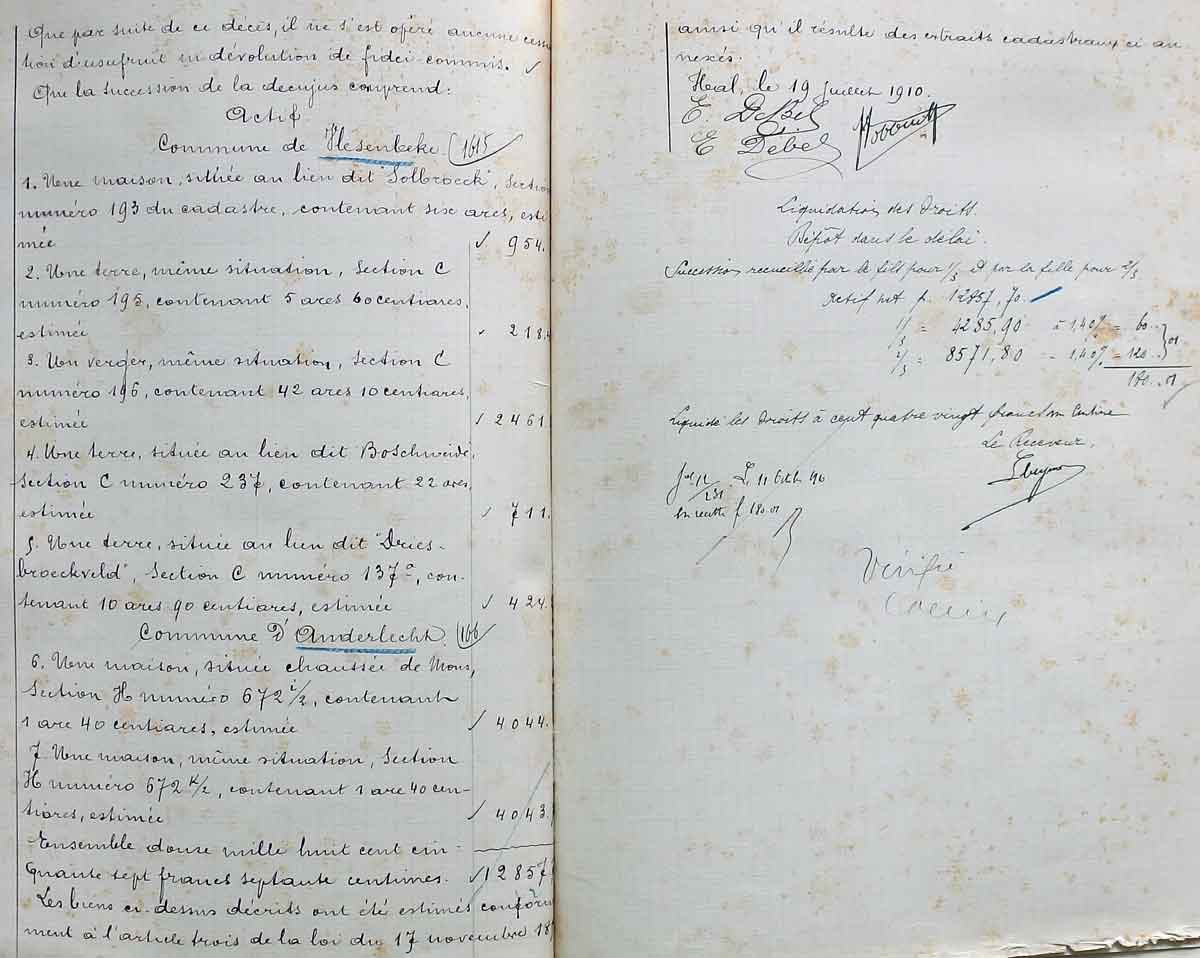 Que par suite de ce décès, il ne s'est opéré aucune
tion d'usufruit ni dévolution de fidei-commis.
Que la succession de la decujus comprend:
Actif
Commune de Vlesenbeke (1615
1. Une maison, située au lieu dit "Solbroeck", Section
numéro 193 du cadastre, contenant six ares, esti
mée ✓ 954.
2. Une terre, même situation, Section C
numéro 195, contenant 5 ares 60 centiares,
estimée ✓ 218.
3. Un verger, même situation, Section C
numéro 196, contenant 42 ares 10 centiares,
estimée ✓ 2461.
4. Une terre, située au lieu dit Boschweide,
Section C numéro 237, contenant 22 ares,
estimée ✓ 711.
5. Une terre, située au lieu dit "Dries-
broeckveld", Section C numéro 137ª, con-
tenant 10 ares 90 centiares, estimée ✓ 424.
Commune d'Anderlecht (166
6. Une maison, située chaussée de Mons,
Section H numéro 672 i/2, contenant
1 are 40 centiares, estimée ✓ 4044.
7. Une maison, même situation, Section
H numéro 672 K/2, contenant 1 are 40 cen-
tiares, estimée ✓ 4043.
Ensemble douse mille huit cent cin-
quante sept francs septante centimes. ✓ 12857
Les biens ci-dessus décrits ont été estimés conformé
ment à l'article trois de la loi du 17 novembre 18
ainsi qu'il résulte des extraits cadastraux ci an
nexés.
Hal, le 19 Juillet 1910.
E. DeBel
E Debel
Liquidation des droits.
Dépôt dans le délai.
Succession recueillie par le fils pour 1/3 et par la fille pour 2/3
Actif net f. 12857,70.
1/3 = 4285,90 à 1,40% = 60..
2/3 = 8571,80 - 1,40% = 120.. } 01
180..01
Liquidé les droits à cent quatre vingt francs un centime
Le Receveur,
en recette f 180.01
Vérifié